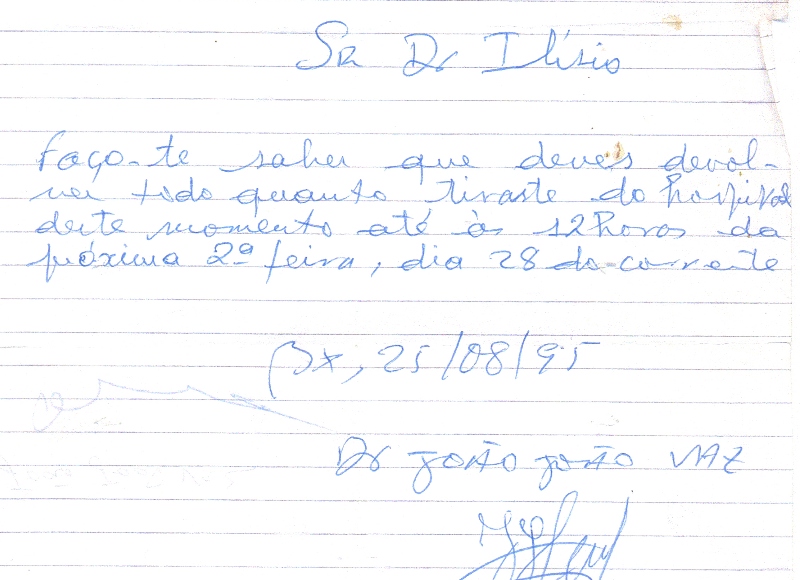 Sr Dr Ilísio
Faço-te saber que deves devol-
ver todo quanto tiraste do hospital
deste momento até às 12horas da
próxima 2ª feira, dia 28 do corrente
Bx, 25/08/95
Dr João João Vaz